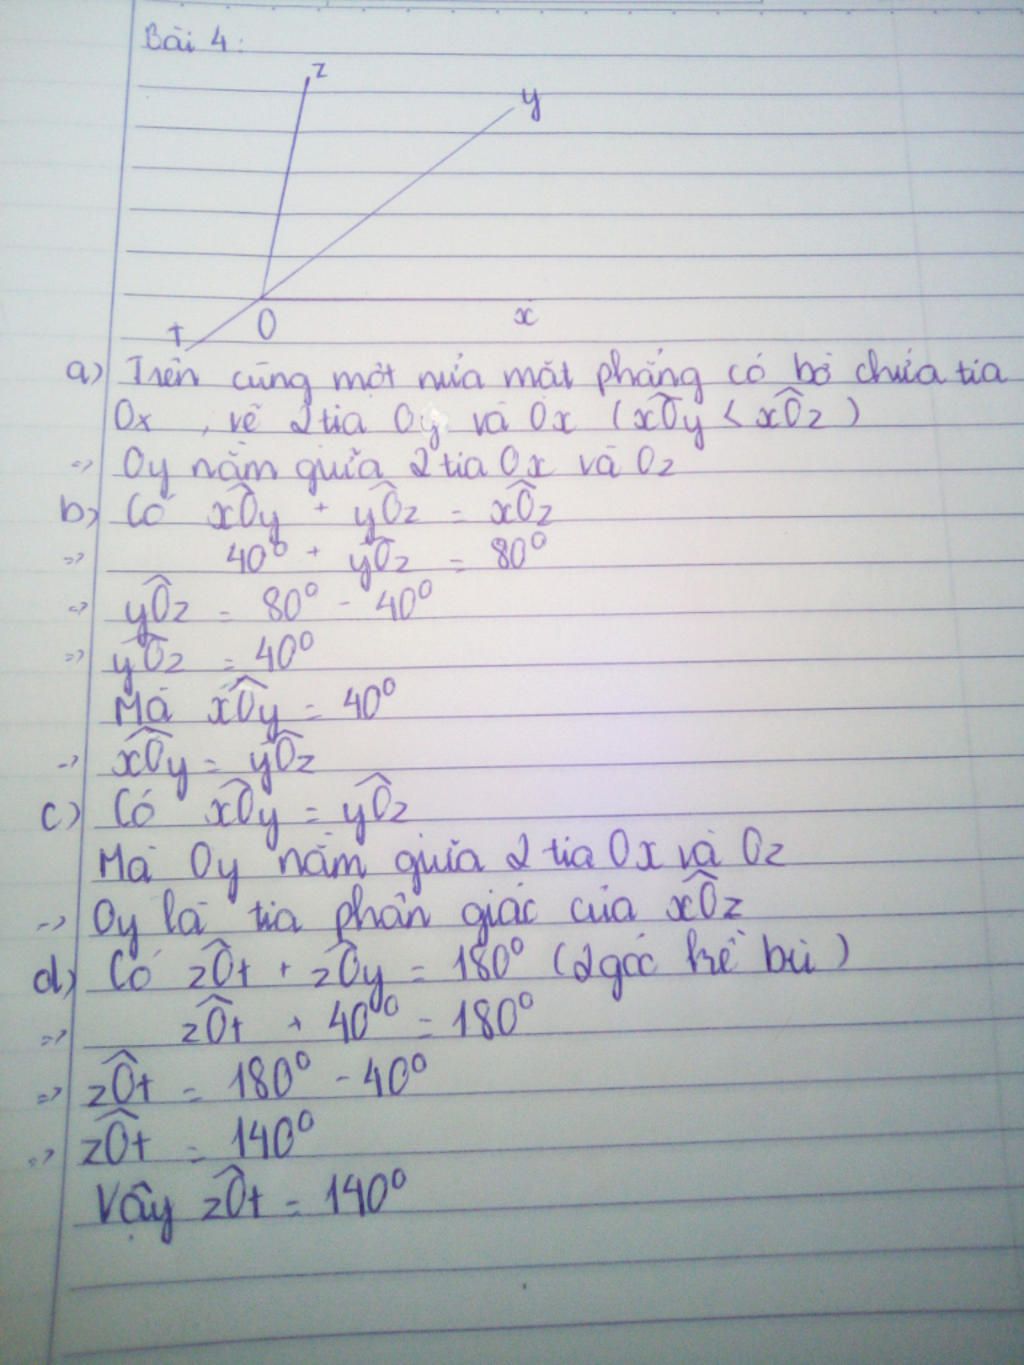 Bài 4:
z
y
t
O
x
a) Trên cùng một nửa mặt phẳng có bờ chứa tia
Ox, vẽ 2 tia Oy và Ox (xÔy < xÔz)
=> Oy nằm giữa 2 tia Ox và Oz
b) Có xÔy + yÔz = xÔz
=> 40° + yÔz = 80°
=> yÔz = 80° - 40°
=> yÔz = 40°
Mà xÔy = 40°
-> xÔy = yÔz
c) Có xÔy = yÔz
Mà Oy nằm giữa 2 tia Ox và Oz
-> Oy là tia phân giác của xÔz
d) Có zÔt + zÔy = 180° (2 góc kề bù)
=> zÔt + 40° = 180°
=> zÔt = 180° - 40°
=> zÔt = 140°
Vậy zÔt = 140°